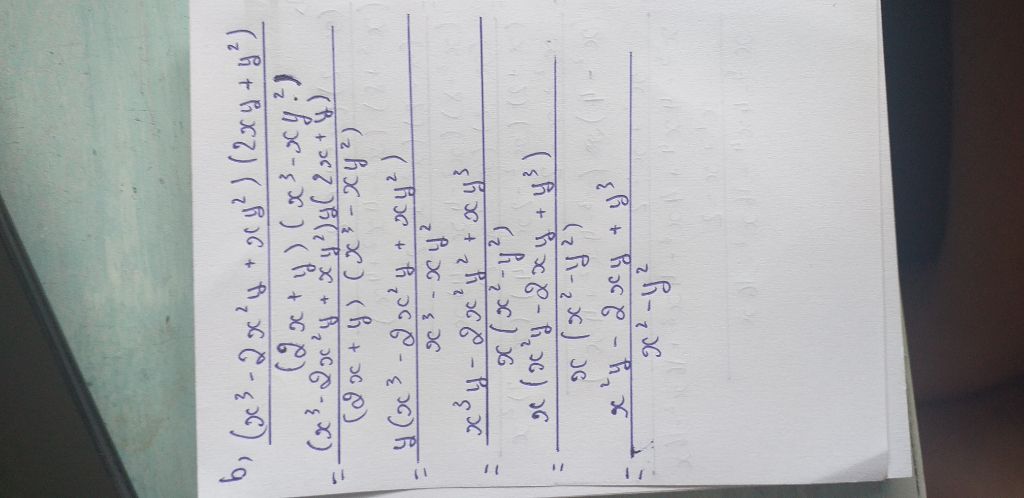 b, (x³ - 2x²y + xy²) (2xy + y²)
(2x + y) (x³ - xy²)
= (x³ - 2x²y + xy²) y (2x + y)
(2x + y) (x³ - xy²)
= y (x³ - 2x²y + xy²)
x³ - xy²
= x³y - 2x²y² + xy³
x (x² - y²)
= x (x²y - 2xy + y³)
x (x² - y²)
= x²y - 2xy + y³
x² - y²